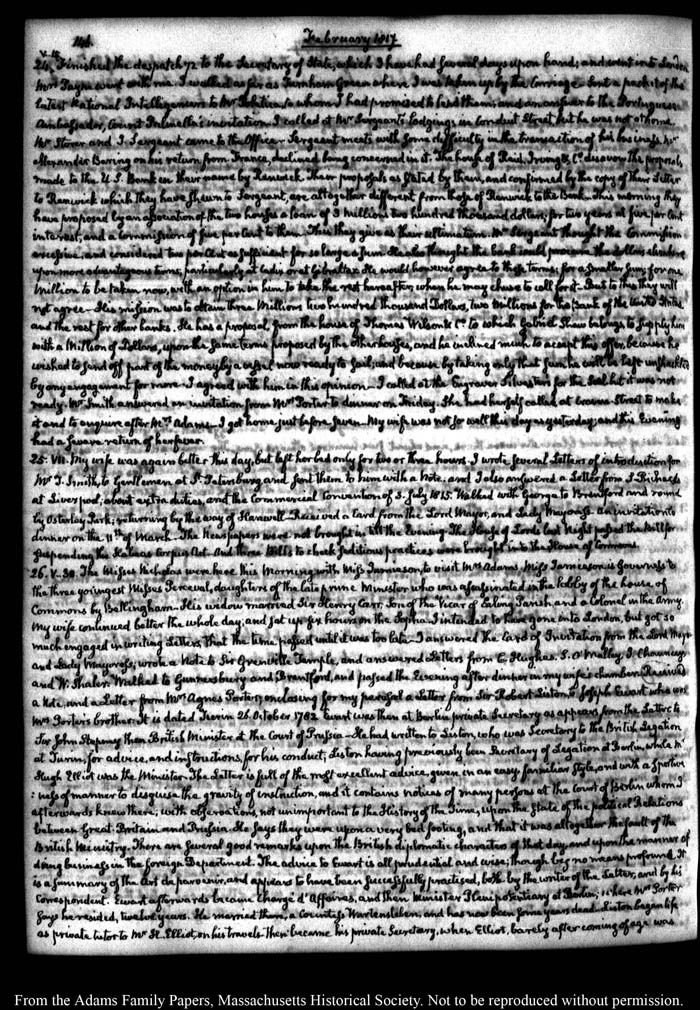 141. February 1817
V. 15.
24. Finished the despatch 72 to the Secretary of State, which I have had several days upon hand; and went into London
Mrs Payne went with me. I walked as far as Turnham Green where I was taken up by the Carriage. Sent a packet of the
latest National Intelligencers to Mr to whom I had promised to lend them: and an answer to the Portuguese
Ambassador, Count Palmella's invitation. I called at Mr Sergeant's lodgings in Conduit Street, but he was not at home.
Mr Storer and J. Sergeant came to the Office. Sergeant meets with some difficulty in the transaction of his business. Mr
Alexander Baring on his return from France, declined being concerned in it. The house of Reid, Irving & Co. disavow the proposals
made to the U.S. Bank in their name by Renwick. Their proposals as stated by them, and confirmed by the copy of their Letter
to Renwick which they have shewn to Sergeant, are altogether different from those of Renwick to the Bank. This morning they
have proposed by an association of the two houses a loan of 3 millions two hundred thousand dollars; for two years at five per Cent
interest, and a Commission of five per Cent to them. This they give as their ultimatum. Mr Sergeant thought the Commission
excessive, and considered two per Cent as sufficient for so large a sum. He also thought the bank could purchase the dollars
upon more advantageous terms, particularly at Cadiz or at Gibraltar. He would however agree to these terms; for a smaller sum, for one
Million to be taken now, with an option in him to take the rest hereafter, when he may chuse to call for it. But to this they will
not agree. His mission was to obtain three Millions two hundred thousand Dollars, two Millions for the Bank of the United States
and the rest for other banks. He has a proposal, from the house of Thomas Wilson & Co. to which Gabriel Shaw belongs to supply him
with a Million of Dollars, upon the same terms proposed by the other houses, and he inclined much to accept this offer, because he
wished to send off part of the money by a vessel now ready to sail; and because by taking only that sum he will be left unshackled
by any engagement for more. I agreed with him in this opinion. I called at the Engraver Silvester's for the Seal but it was not
ready. Mr Smith answered an invitation from Mrs Porter to dinner on Friday. She had herself called at Craven-Street to make
it and to enquire after Mrs Adams. I got home just before seven. My wife was not so well this day as yesterday; and this Evening
had a severe return of her fever.
25. VII. My wife was again better this day, but left her bed only for two or three hours. I wrote several Letters of introduction for
Mr J. Smith, to Gentlemen at St. Petersburg and sent them to him with a Note: and I also answered a Letter from
at Liverpool; about extra duties, and the Commercial Convention of 3. July 1815. Walked with George to Brentford and round
by Osterley Park; returning by the way of Hanwell. Received a Card from the Lord Mayor, and Lady Mayoress. An invitation to
dinner on the 11th of March. The Newspapers were not brought us till the Evening. The House of Lords last Night passed the Bill for
suspending the Habeas Corpus Act. And three Bills to check seditious practices were brought into the House of Commons.
26. V. 30. The Misses Nicholas were here this Morning with Miss Jamieson, to visit Mrs Adams. Miss Jamieson is Governess to
the three youngest Misses Perceval, daughters of the late prime Minister who was assassinated in the lobby of the house of
Commons by Bellingham. His widow married Sir Henry Carr, Son of the Vicar of Ealing Parish, and a Colonel in the Army.
My wife continued better the whole day, and sat up six hours on the Sopha. I intended to have gone into London, but got so
much engaged in writing Letters, that the time passed until it was too late. I answered the Card of Invitation from the Lord Mayor
and Lady Mayoress; wrote a Note to Sir Grenville Temple, and answered Letters from C. Hughes. S. O'Malley, I. Chauncey
and W. Thaler. Walked to Gunnersbury and Brentford, and passed the Evening after dinner in my wife's chamber. Received
a Note, and a Letter from Mrs Agnes Porter, enclosing for my perusal a Letter from Sir Robert Liston to Joseph Ewart who was
Mrs Porter's brother. It is dated Turin 26. October 1782. Ewart was then at Berlin private Secretary as appears from the Letter to
Sir John Stepney then British Minister at the Court of Prussia. He had written to Liston, who was Secretary to the British Legation
at Turin, for advice, and instructions, for his conduct; Liston having previously been Secretary of Legation at Berlin while Mr
Hugh Elliot was the Minister. The Letter is full of the most excellent advice, given in an easy familiar style, and with a sportive
:ness of manner to disguise the gravity of instruction, and it contains notices of many persons at the Court of Berlin whom I
afterwards knew there; with observations, not unimportant to the History of the Time, upon the State of the political Relations
between Great-Britain and Prussia. He says they were upon a very bad footing, and that it was altogether the fault of the
British Ministry. There are several good remarks upon the British diplomatic characters of that day, and upon the manner of
doing business in the foreign Department. The advice to Ewart is all prudential and wise; though by no means profound. It
is a summary of the Art de parvenir, and appears to have been successfully practised, both by the writer of the Letter, and by his
Correspondent. Ewart afterwards became Chargé d'Affaires, and then Minister Plenipotentiary at Berlin; where Mrs Porter
says he resided, twelve years. He married there, a Countess Wartensleben, and has now been some years dead. Liston began life
as private tutor to Mr H. Elliot, on his travels. Then became his private Secretary, when Elliot, barely after coming of age was
From the Adams Family Papers, Massachusetts Historical Society. Not to be reproduced without permission.